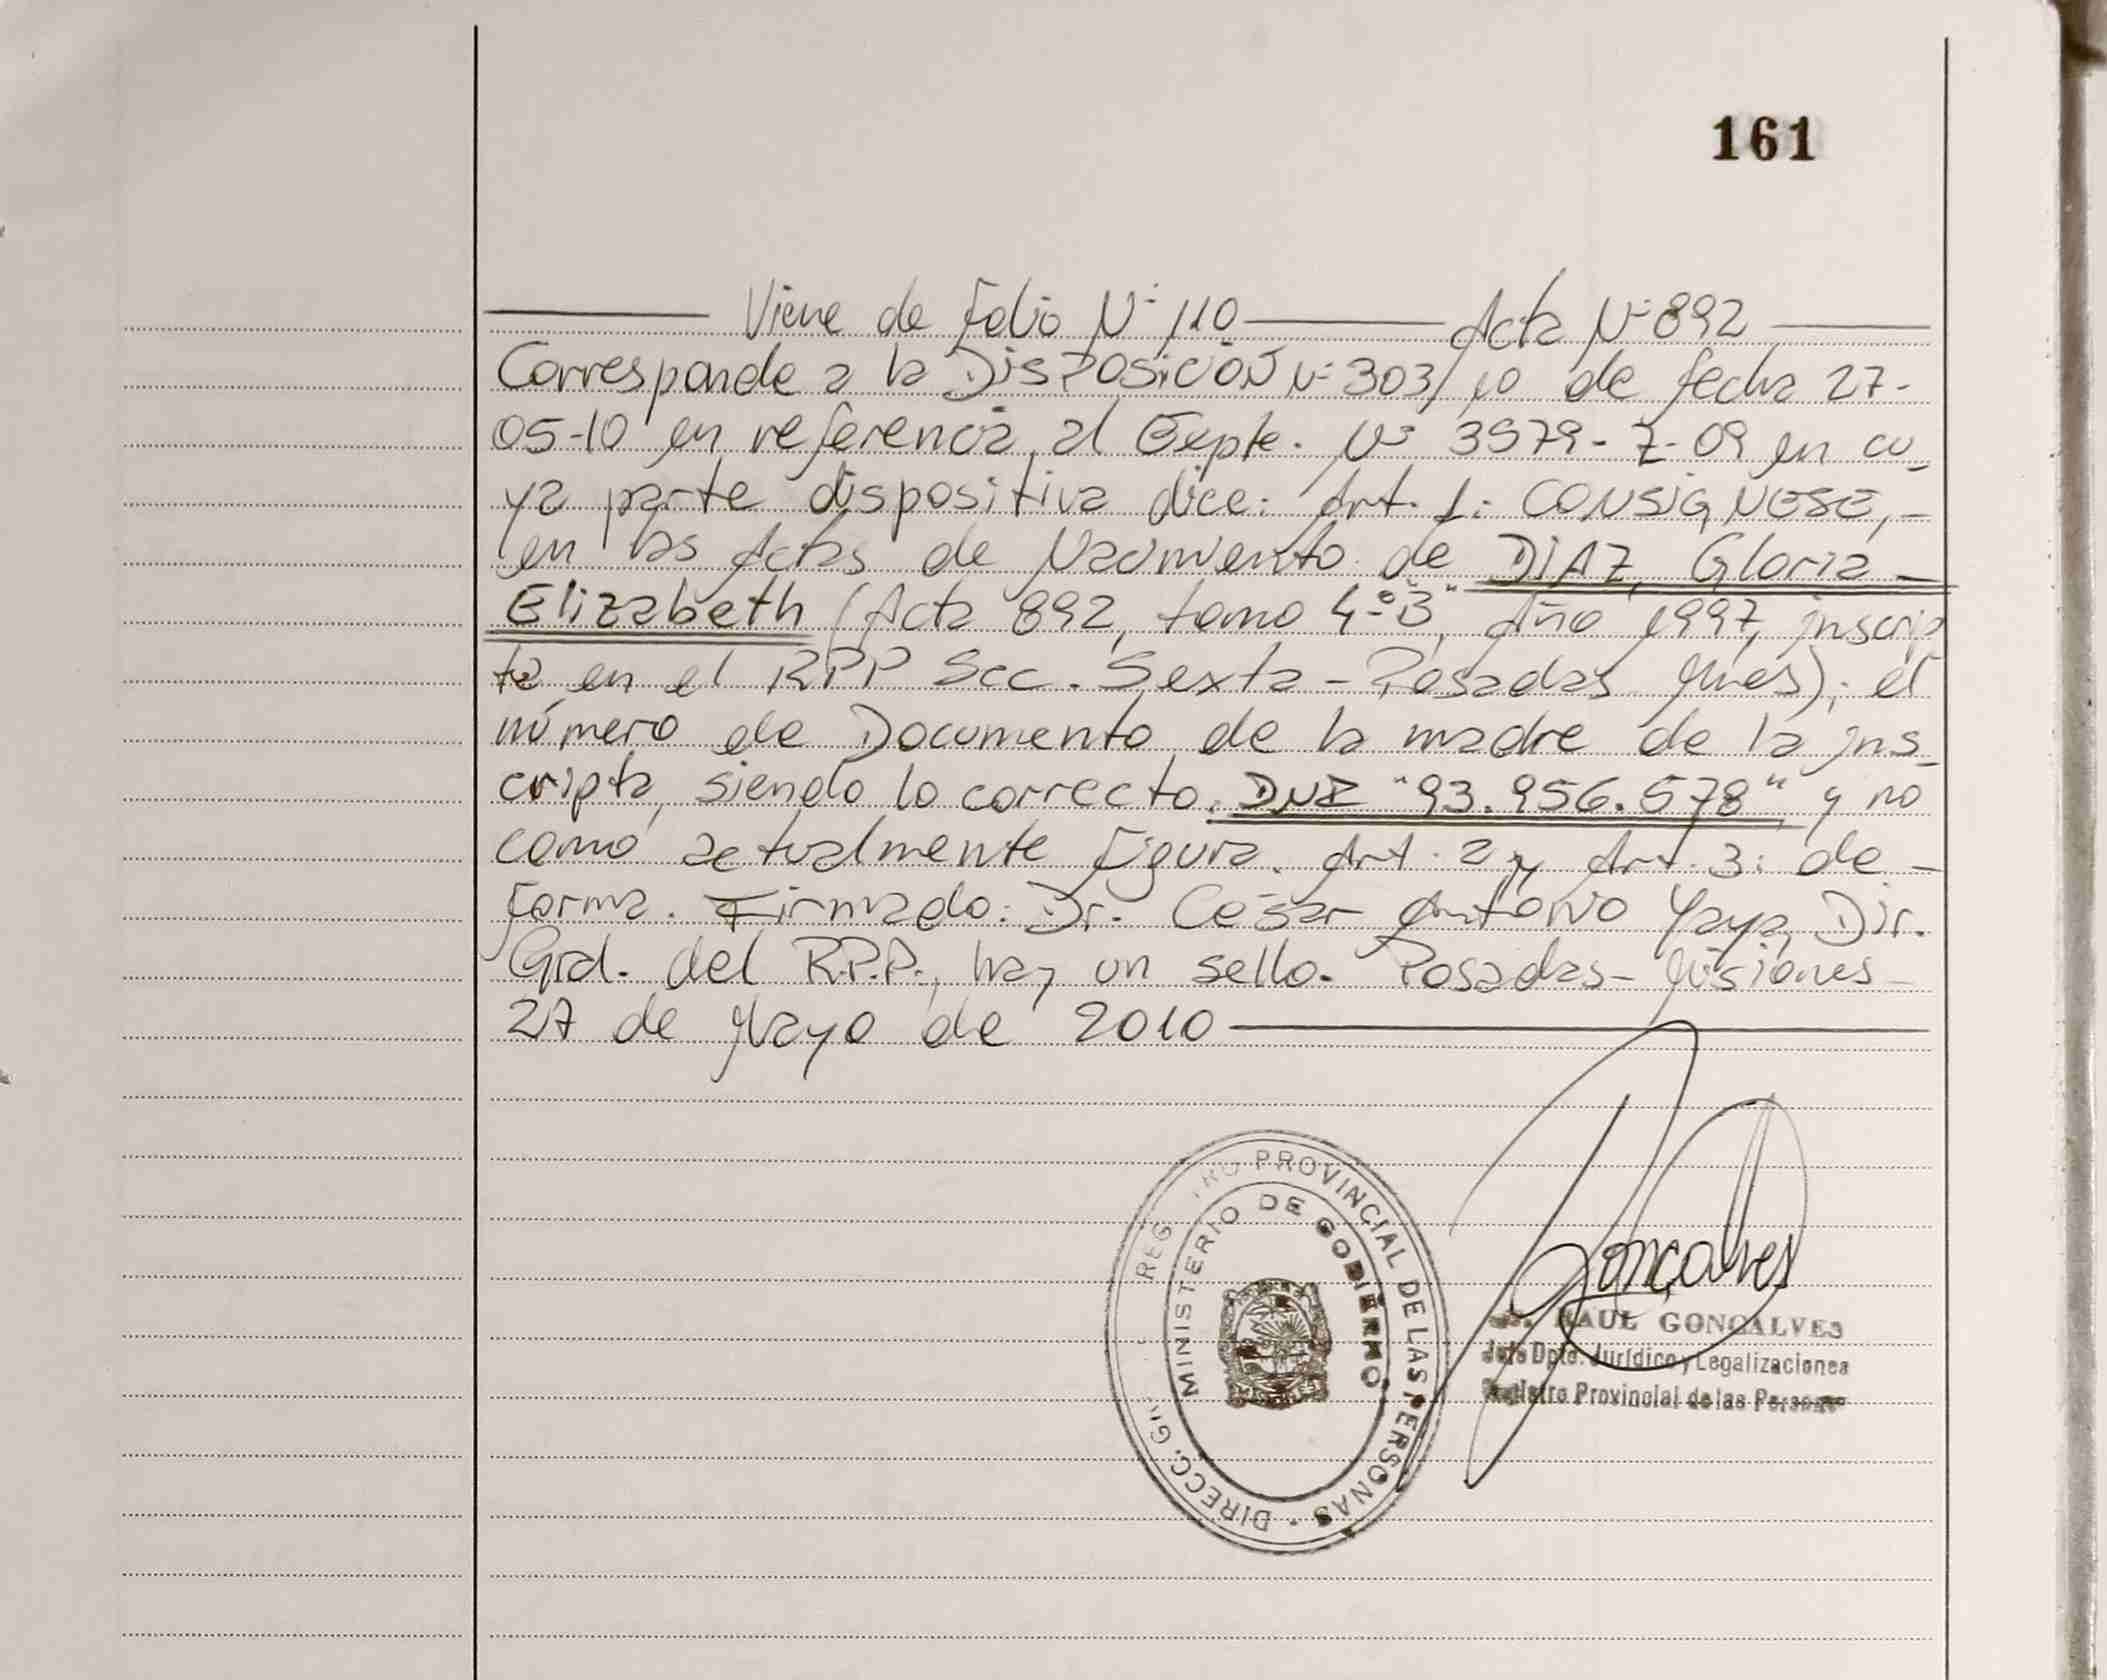 161
Viene de Folio Nº 110 Acta Nº 892
Corresponde a la DISPOSICIÓN Nº 303/10 de fecha 27-
05-10 en referencia al Expte. Nº 3979-Z-09 en cu_
ya parte dispositiva dice: Art. 1: CONSIGNESE,-
en las Actas de Nacimiento de DIAZ, Gloria -
Elizabeth (Acta 892, tomo 4º "B", Año 1997, inscrip
ta en el RPP Scc. Sexta - Posadas Mnes); el
número de Documento de la madre de la ins_
cripta, siendo lo correcto. DNI "93.956.578" y no
como actualmente Figura. Art. 2 y Art. 3: de -
Forma. Firmado: Dr. César Antonio Yaya, Dir.
Gral. del R.P.P., hay un sello. Posadas - Misiones -
27 de Mayo de 2010
Goncalves
RAUL GONCALVES
Jefe Dpto. Jurídico y Legalizaciones
Registro Provincial de las Personas
DIRECC. REG TRO PROVINCIAL DE LAS PERSONAS
MINISTERIO DE GOBIERNO